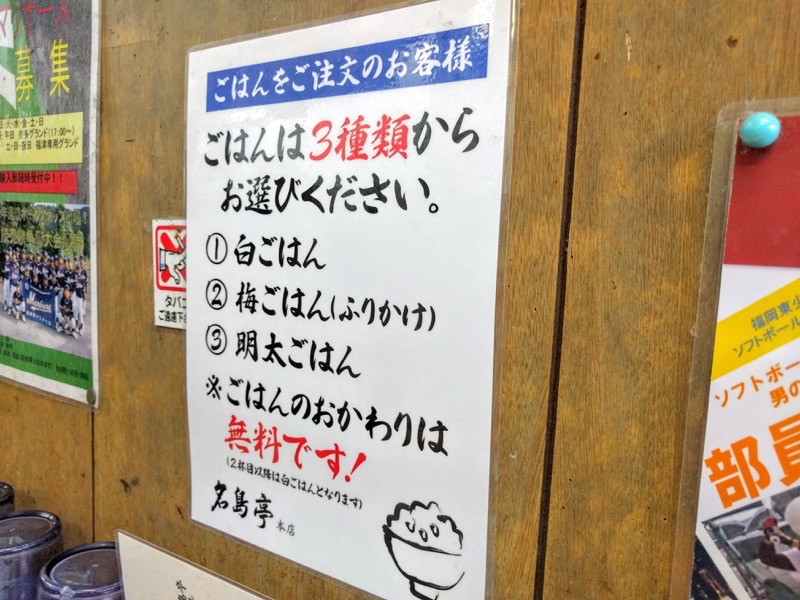 ごはんをご注文のお客様
ごはんは3種類から
お選びください。
① 白ごはん
② 梅ごはん(ふりかけ)
③ 明太ごはん
※ごはんのおかわりは
無料です!
(2杯目以降は白ごはんとなります)
名島亭 本店
募集
土・日・祝日 福津専用グランド
タバコ
福岡東
ソフトボール
ソフトボー
男の
部員